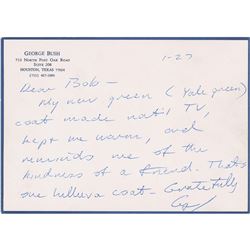 GEORGE BUSH
710 NORTH POST OAK ROAD
SUITE 208
HOUSTON, TEXAS 77024
(713) 467-1989
1-27
Dear Bob -
My new green (Yale green)
coat made nat'l TV,
kept me warm, and,
reminds me of the
kindness of a friend. That's
one helluva coat - Gratefully